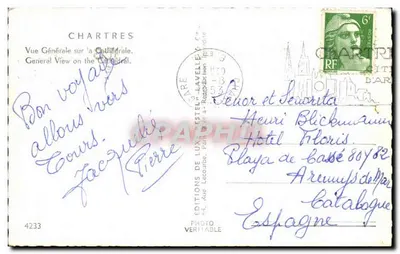 CHARTRES
Vue Générale sur la Cathédrale.
General View on the Cathedral.
Bon voyage
allons vers
Tours.
Jacqueline
Pierre
4233
EDITIONS DE LUXE ESTEL
PHOTO
VERITABLE
6F
RF
CHARTRES
Senor et Senorita
Henri Blickmann
Hotel Floris
Playa de Cassé 80/82
Arenys de Mar
Catalogne
Espagne